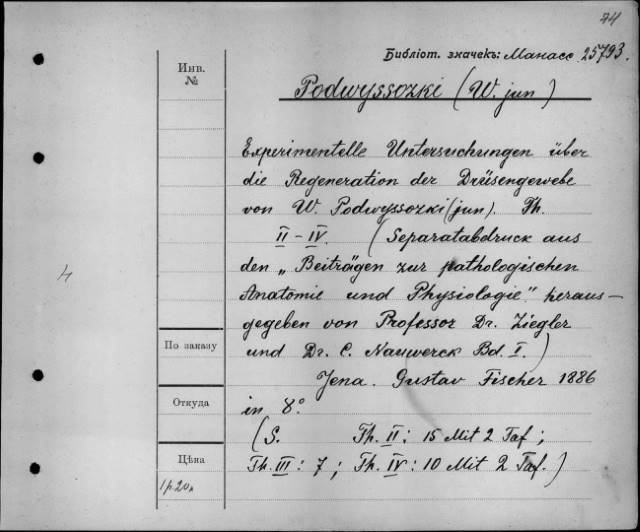 74
Библіот. значекъ: Манасс. 25793.
Инв.
№
Podwyssozki (W. jun)
Experimentelle Untersuchungen über
die Regeneration der Drüsengewebe
von W. Podwyssozki (jun). Th.
II-IV. (Separatabdruck aus
den „Beiträgen zur pathologischen
Anatomie und Physiologie" heraus-
gegeben von Professor Dr. Ziegler
und Dr. C. Nauwerck Bd. I.)
Jena. Gustav Fischer 1886
in 8°.
(S. Th. II: 15 Mit 2 Taf;
Th. III: 7; Th. IV: 10 Mit 2 Taf.)
4
По заказу
Откуда
Цѣна
1р20к